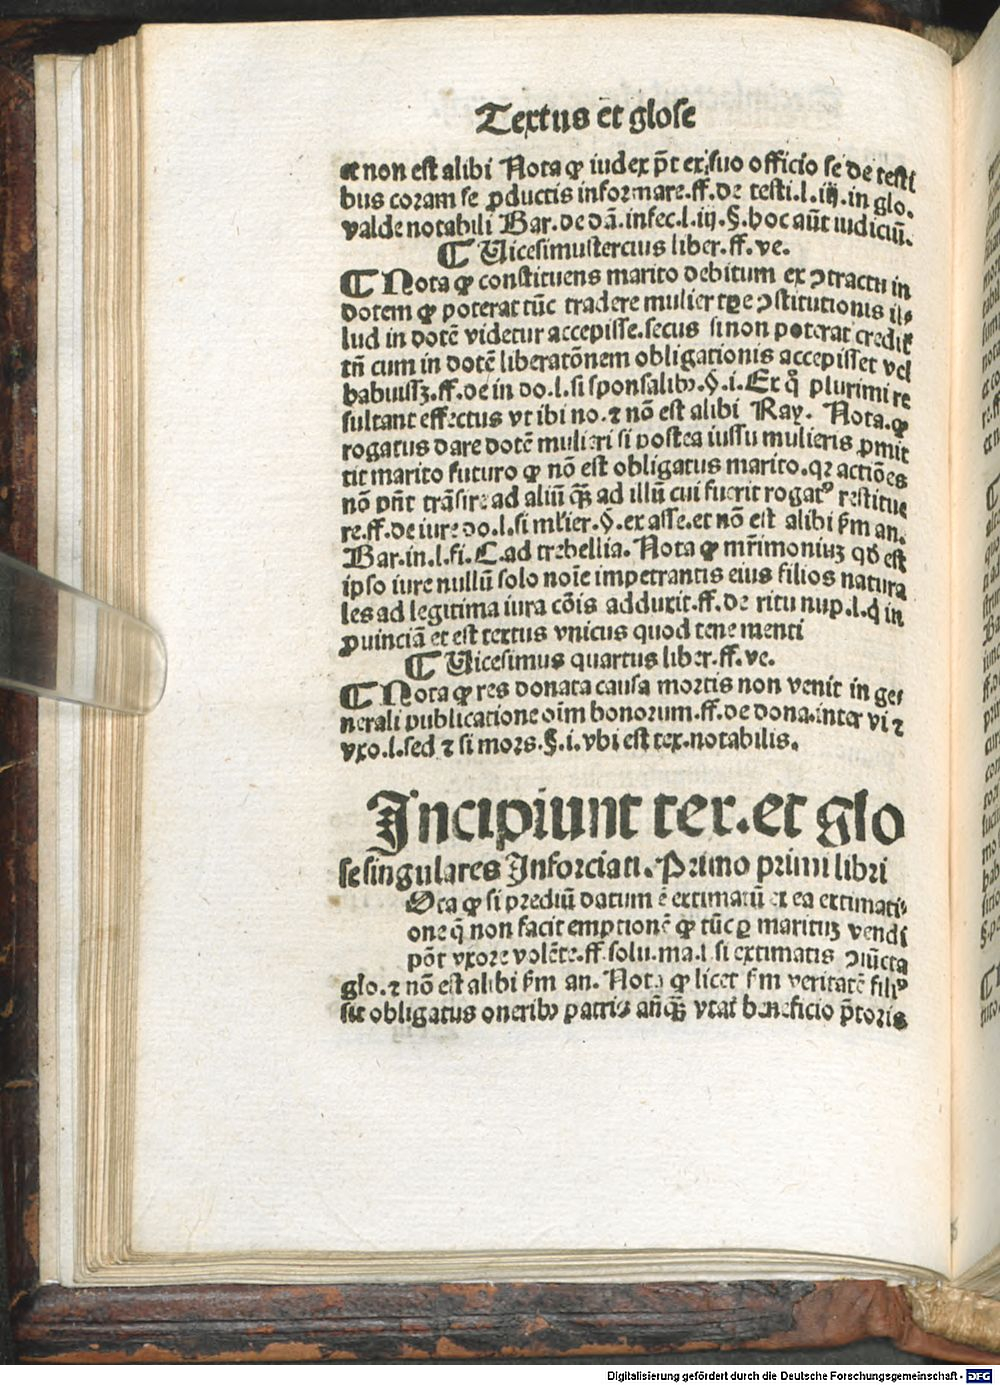 Textus et glose
et non est alibi Nota ꝙ iudex p̄t ex suo officio se de testi
bus coram se ꝓductis informare.ff.de testi.l.iij.in glo.
valde notabili Bar.de dā.infec.l.iij.§.hoc aūt iudiciū.
¶ Uicesimustercius liber.ff.ve.
¶ Nota ꝙ constituens marito debitum ex ↄtractu in
dotem ꝙ poterat tūc tradere mulier tꝑe ↄstitutionis il⸗
lud in dotē videtur accepisse.secus si non poterat
tn̄ cum in dotē liberatōnem obligationis accepisset vel
habuissꝫ.ff.de in do.l.si sponsalibꝰ.§.i.Ex q̊ plurimi re
sultant effectus vt ibi no.⁊ nō est alibi Ray. Nota.ꝙ
rogatus dare dotē mulieri si postea iussu mulieris ꝓmit
tit marito futuro ꝙ nō est obligatus marito.qꝛ actiōes
nō pn̄t trāsire ad aliū qꝫ̄ ad illū cui fuerit rogatꝰ restitue
re.ff.de iure do.l.si ml̓ier.§.ex asse.et nō est alibi ẜm an.
Bar.in.l.fi.C.ad trebellia. Nota ꝙ mr̄imoniuꝫ qd̓ est
ipso iure nullū solo noīe impetrantis eius filios natura
les ad legitima iura cōis adduxit.ff.de ritu nup.l.q̄ in
ꝓuinciā et est textus vnicus quod tene menti
¶ Uicesimus quartus liber.ff.ve.
¶ Nota ꝙ res donata causa mortis non venit in ge⸗
nerali publicatione oīm bonorum.ff.de dona.inter vi ⁊
vxo.l.sed ⁊ si mors.§.i.vbi est tex.notabilis.
Incipiunt tex.et glo
se singulares Inforciati.Primo primi libri
Ota ꝙ si prediū datum ē extimatū ex ea extimati⸗
one q̄ non facit emptionē ꝙ tūc ꝑ maritꝫ vendi
pōt vxore volēte.ff.solu.ma.l.si extimatis ↄiūcta
glo.⁊ nō est alibi ẜm an. Nota ꝙ licet ẜm veritatē filiꝰ
sit obligatus oneribꝰ patris añqꝫ̄ vtat̄ beneficio p̄toris
Digitalisierung gefördert durch die Deutsche Forschungsgemeinschaft - DFG